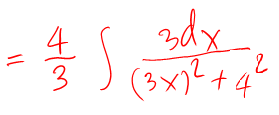 = \frac{4}{3} \int \frac{3dx}{(3x)^2 + 4^2}